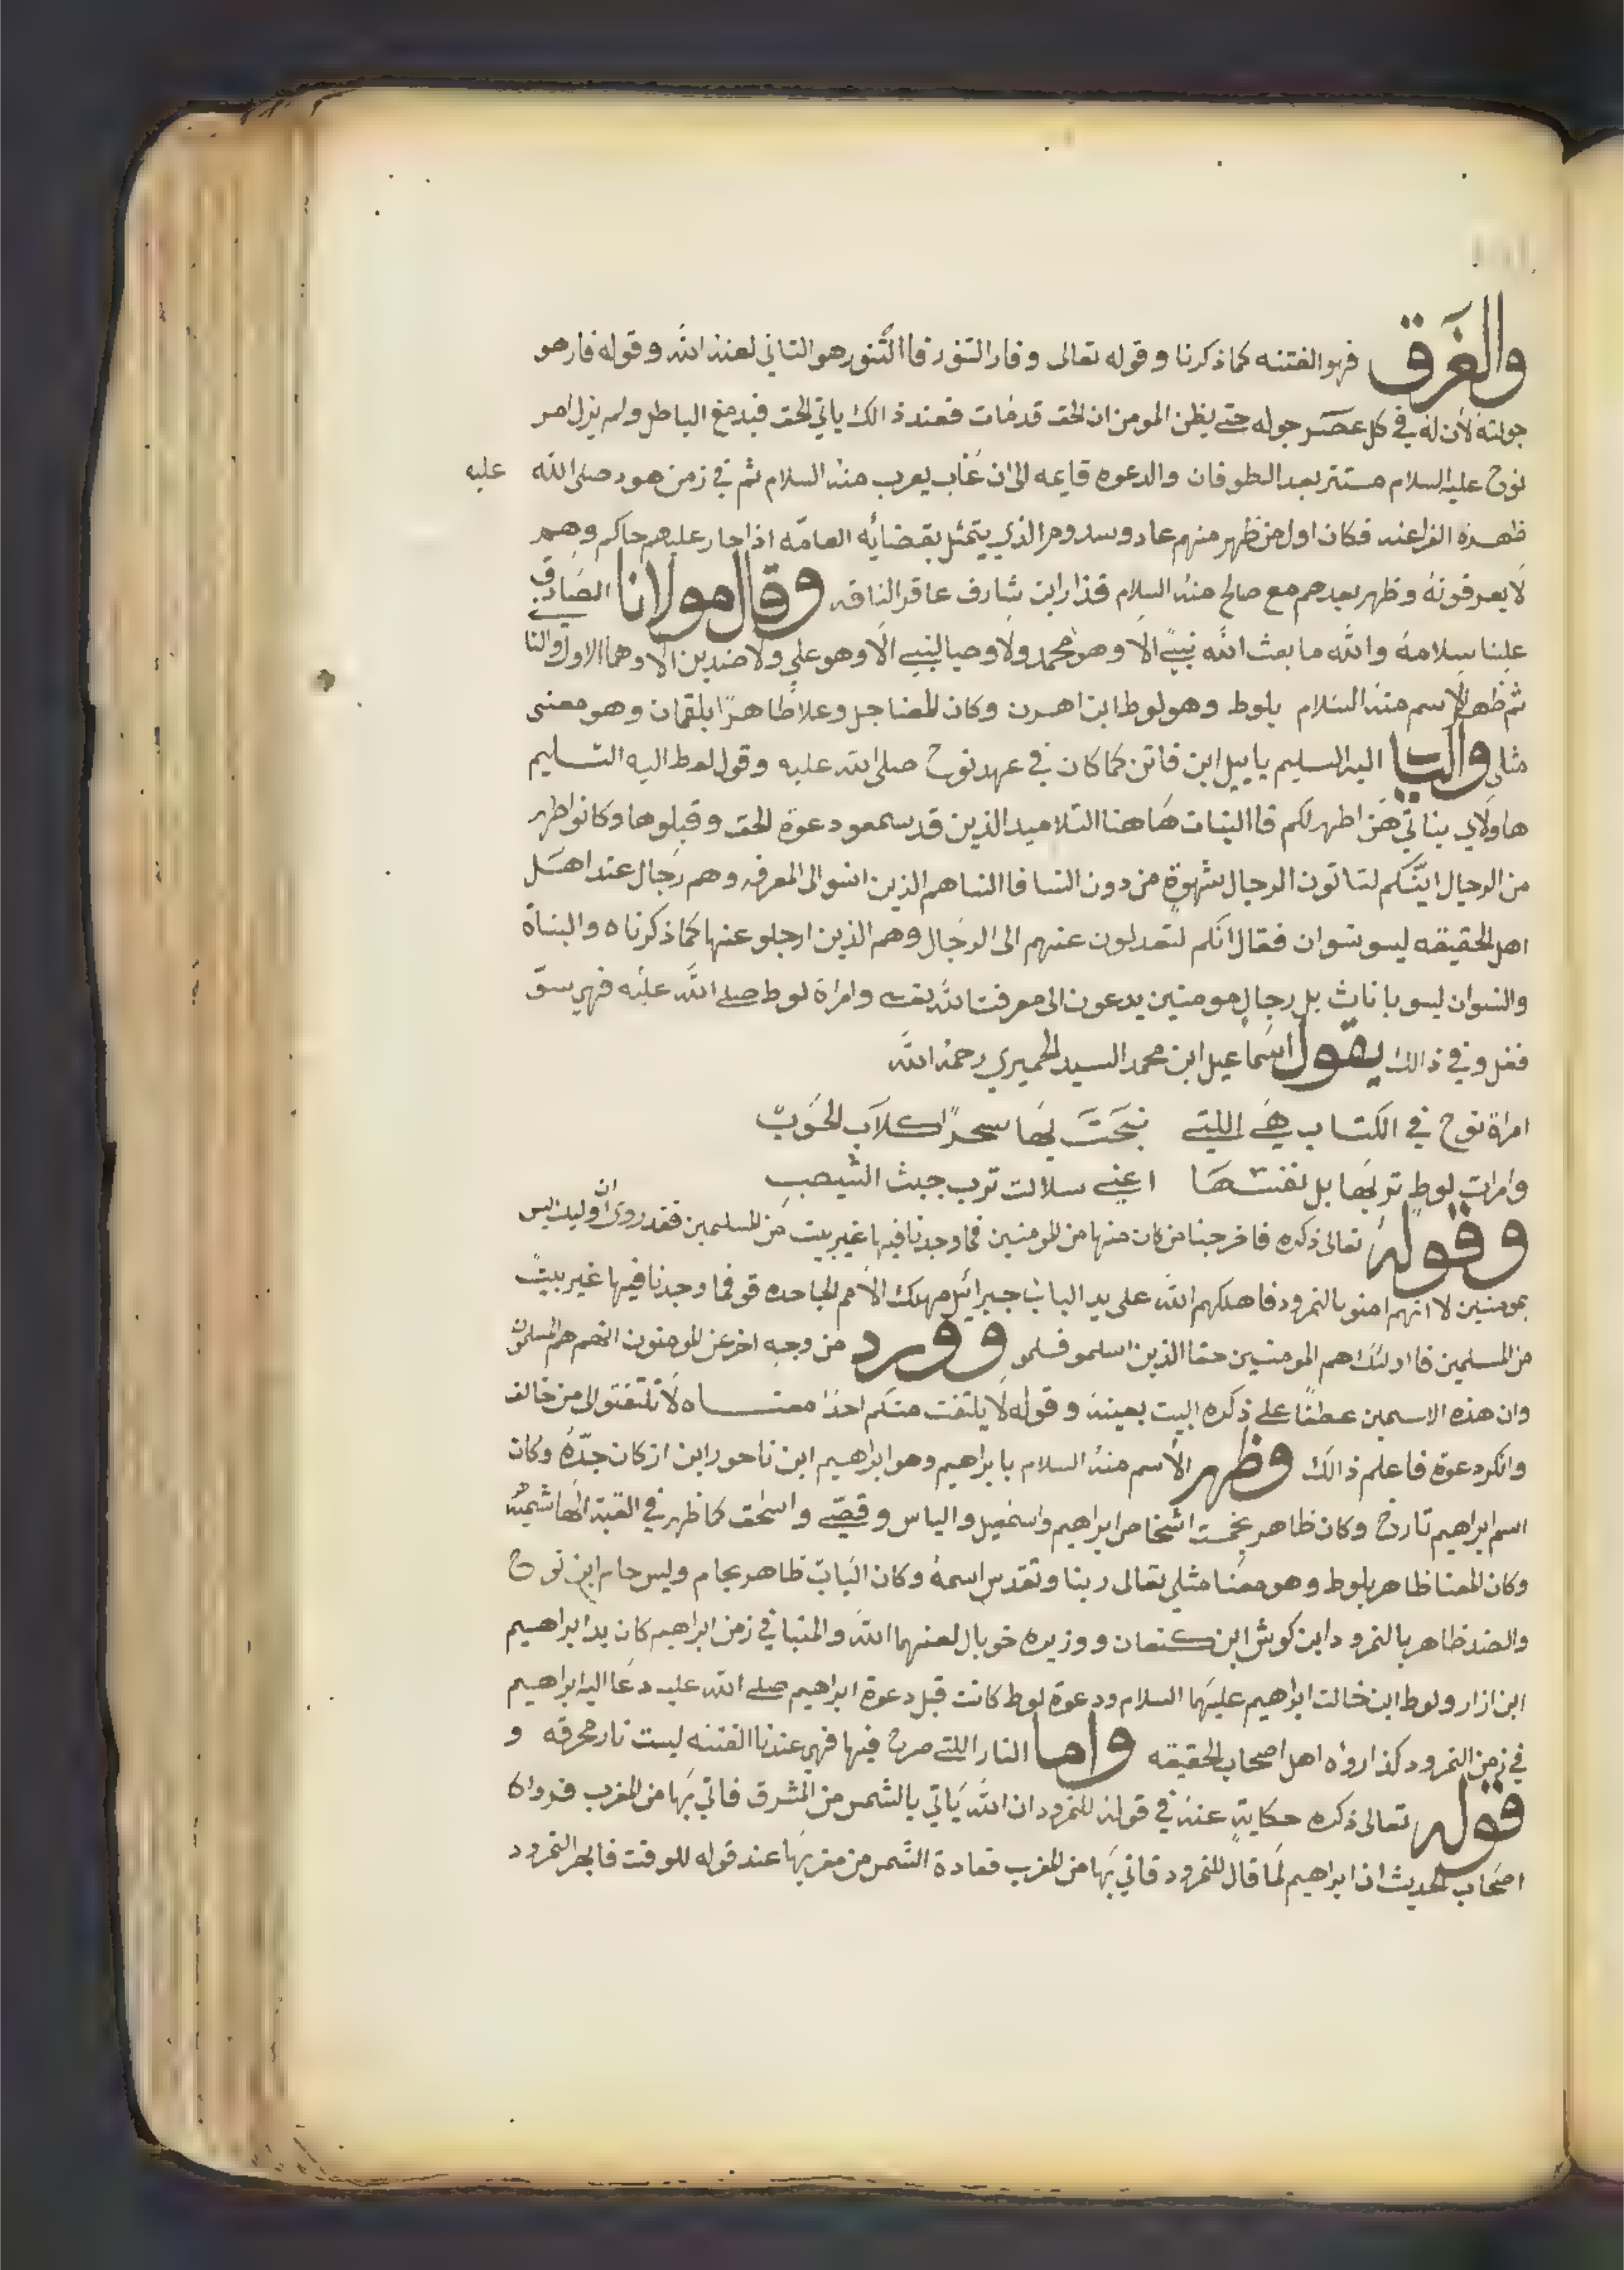 والغَرَق فهو الفتنه كما ذكرنا وقوله تعالى وفار التنور فا التنور هو الثاني لعنه الله وقوله فار هو
جولته لأن له في كل عصر جوله حتى يظن المومن ان الحق قد مات فعند ذالك ياتي الحق فيدمغ الباطل ولم يزل امر
نوح عليه السلام مستتر بعد الطوفان والدعوه قايمه الى ان غاب يعرب منه السلام ثم في زمن هود صلى الله عليه
ظهرة الفراعنه فكان اول من ظهر منهم عاد وسدوم الذي يتمثل بقضائه العامّه اذا جار عليهم حاكم وهم
لا يعرفونهُ وظهر بعدهم مع صالح منهُ السلام قذار ابن شارف عاقر الناقه وقال مولانا الصادق
علينا سلامهُ والله ما بعث الله نبيً الا وهو محمد ولا وصيا لنبي الا وهو علي ولا ضدين الا وهما الاول والثا
ثم ظهر الاسم منه السلام بلوط وهو لوط ابن اهرن وكان المعنا جل وعلا ظاهرًا بلقمان وهو معنى
مثلي والبا اليه التسليم ياييل ابن فاتن كما كان في عهد نوح صلى الله عليه وقول لوط اليه التسليم
هاولاي بناتي هَنّ اطهر لكم فا البنات هاهنا التلاميد الذين قد سمعو دعوة الحق وقبلوها وكانو اطهر
من الرجال ايَنّكم لتاتون الرجال شهوةٍ من دون النسا فا النسا هم الذين انسو الى المعرفه وهم رجال عند اهل
اهل الحقيقه ليسو نسوان فقال انكم لتعدلون عنهم الى الرجال وهم الذين ارجلو عنها كما ذكرناه والبناة
والنسوان ليسو باناث بل رجال مومنين يدعون الى معرفت الله وامراة لوط صلى الله عليه فهي
وفي ذالك يقول اسماعيل ابن محمد السيد الحميري رحمهُ الله
امراة نوح في الكتاب هي اللتي نبحَتَ بها سحرًا كلاب الحَوَبّ
وامرات لوطٍ تربها بل نفسها اعني سلالت ترب جبت
وقولهُ تعالى ذكره فاخرجنا من كان منها من المومنين فما وجدنا فيها غير بيت من المسلمين فقد روى ان اوليك ليس
بمومنين لا انهم امنو بالنمرود فاهلكهم الله على يد الباب جبرائيل مهلك الامم الجاحده قو فما وجدنا فيها غير بيت
من المسلمين فا اولئك هم المومنين حقا الذين اسلمو فسلمو وورد من وجهٍ اخر عن المومنون انهم هم المسلمون
وان هذه الاسمين عطفًا على ذكره البيت بعينه وقوله لا يلتفت منكم احدًا معناه لا تلتفتو الى من خالف
وانكر دعوة فاعلم ذالك وظهر الاسم منهُ السلام بابراهيم وهو ابراهيم ابن ناحور ابن ازر كان جدّهُ وكان
اسم ابراهيم تارخ وكان ظاهر بخمست اشخاص ابراهيم واسمعيل والياس وقصيّ واسحق كما ظهر في القبة الهاشميه
وكان المعنا ظاهر بلوط وهو معنا مثلي تعالى ربنا وتقدس اسمهُ وكان الباب ظاهر بحام وليس حام ابن نوح
والضد ظاهر بالنمرود ابن كويش ابن كنعان ووزيره خوبال لعنهما الله والمنبا في زمن ابراهيم كان يد ابراهيم
ابن ازار ولوط ابن خالت ابراهيم عليهما السلام ودعوة لوط كانت قبل دعوة ابراهيم صلى الله عليه دعا اليه ابراهيم
في زمن النمرود كذا رواه اهل اصحاب الحقيقه واما النار اللتي صرح فيها فهي عندنا الفتنه ليست نار محرقه و
قوله تعالى ذكره حكايةٍ عنهُ في قوله للنمرود ان الله يَاتي بالشمس من المشرق فاتي بها من المغرب فرواة
اصحاب الحديث ان ابراهيم لما قال للنمرود فاتي بها من المغرب فعادة الشمس من مغربها عند قوله للوقت فابهر النمرود